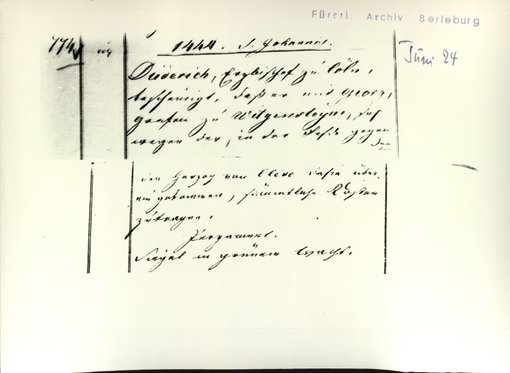 Fürstl. Archiv Berleburg
774
1444. S. Johannis.
Juni 24
Diderich, Erzbischof zu Cöln,
bescheinigt, daß er mit Georg,
Grafen zu Witgensteyne, sich
wegen der, in der Fehde gegen
den
den Herzog von Cleve dahin über-
ein gekommen, sämmtliche Kosten
zutragen.
Pergament.
Siegel in grünem Wachs.